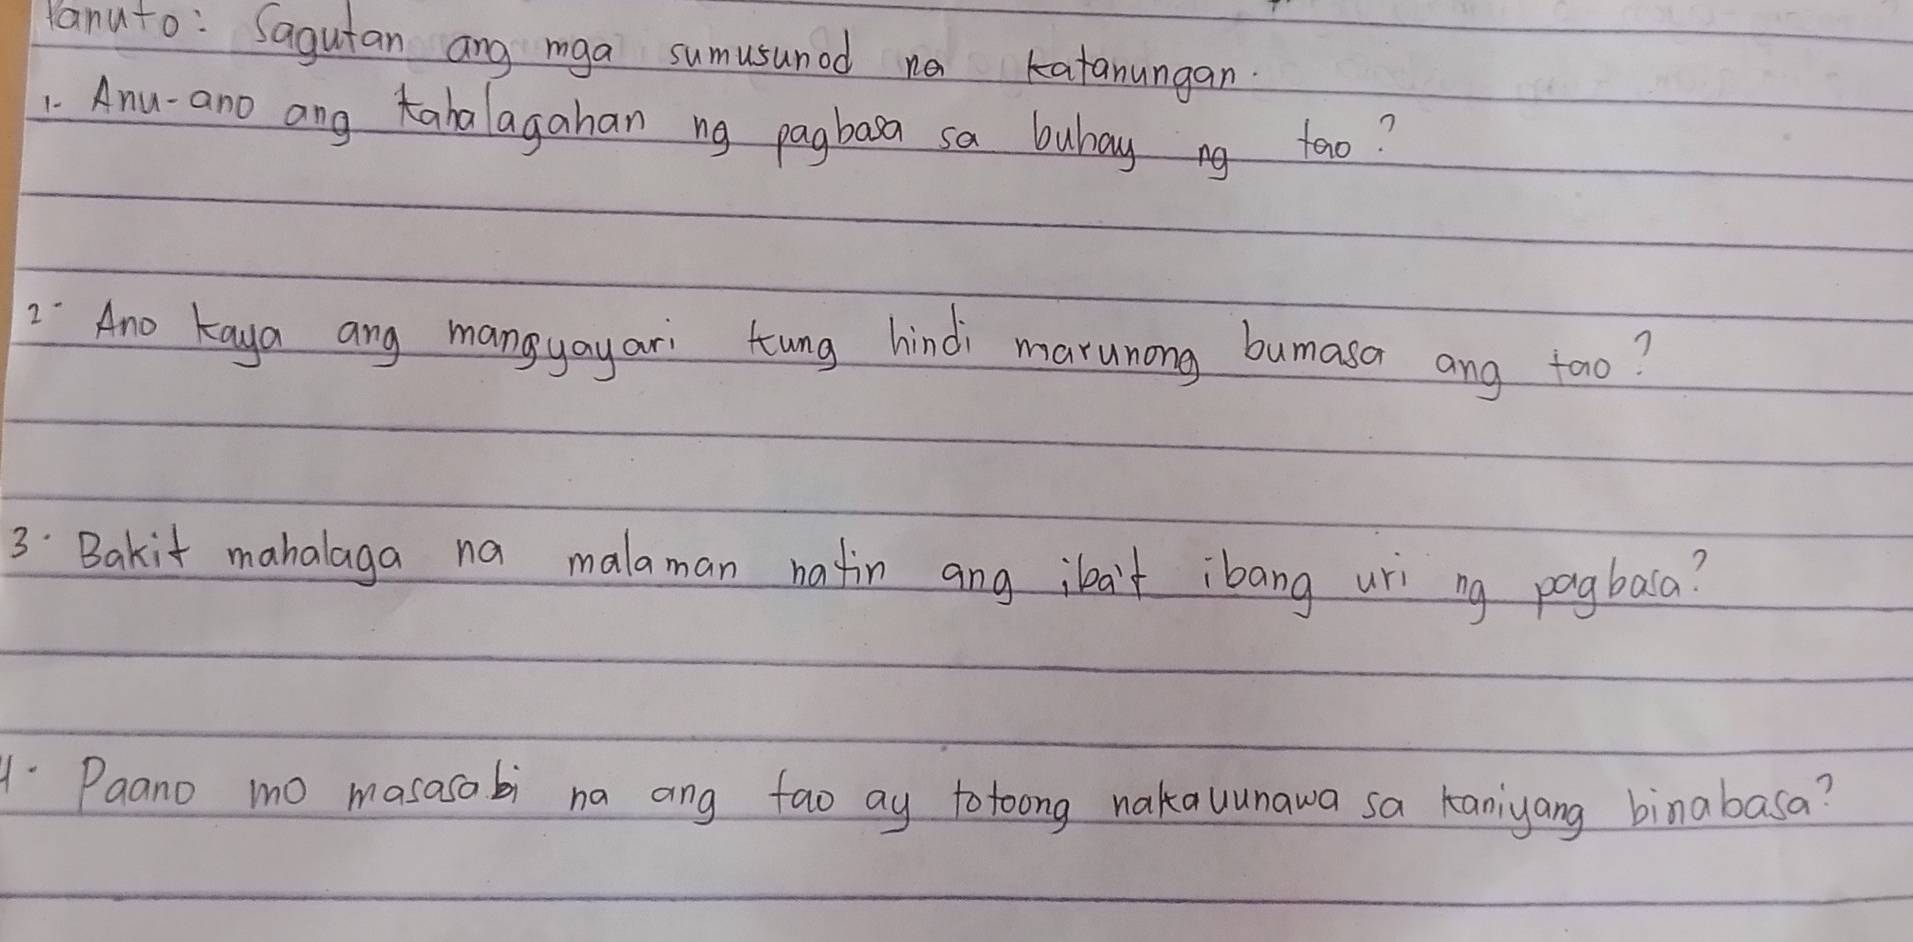 Panuto: Sagutan ang mga sumusunod na katanungan.
1. Anu-ano ang kahalagahan ng pagbasa sa buhay ng tao?
2. Ano kaya ang mangyayari kung hindi marunong bumasa ang tao?
3. Bakit mahalaga na malaman natin ang iba't ibang uri ng pagbasa?
4. Paano mo masasabi na ang tao ay totoong nakauunawa sa kaniyang binabasa?